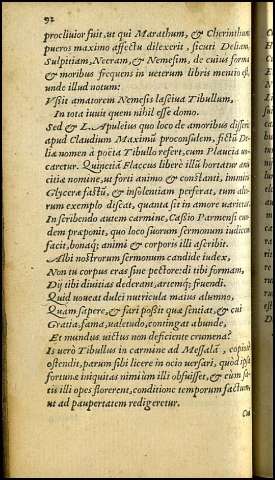 92
procliuior fuit, ut qui Marathum, & Cherinthum
pueros maximo affectu dilexerit, sicuti Deliam,
Sulpitiam, Neeram, & Nemesim, de cuius forma
& moribus frequens in ueterum libris mentio est,
unde illud notum:
Vsit amatorem Nemesis lasciua Tibullum,
In tota iuuit quem nihil esse domo.
Sed & L. Apuleius quo loco de amoribus disserit
apud Claudium Maximū proconsulem, fictū De
lia nomen à poeta Tibullo refert, cum Plaucia uo
caretur. Quinetiā Flaccus liberè illū hortatur ami
citiæ nomine, ut forti animo & constanti, immitis
Glyceræ fastū, & insolentiam perferat, tum alio
rum exemplo discat, quanta sit in amore uarietas.
In scribendo autem carmine, Cassio Parmensi eun
dem præponit, quo loco suorum sermonum iudicem
facit, bonaq; animi & corporis illi ascribit.
Albi nostrorum sermonum candide iudex,
Non tu corpus eras sine pectore: di tibi formam,
Dij tibi diuitias dederam, artemq; fruendi.
Quid uoueat dulci nutricula maius alumno,
Quam sapere, & fari possit quæ sentiat, & cui
Gratia, fama, ualetudo, contingat abunde,
Et mundus uictus non deficiente crumena?
Is uerò Tibullus in carmine ad Messalā, copiosè
ostendit, parum sibi licere in ocio uersari, quòd ipsi
fortunæ iniquitas nimiùm illi obfuisset, & cùm sa-
tis illi opes florerent, conditione temporum factum,
ut ad paupertatem redigeretur.